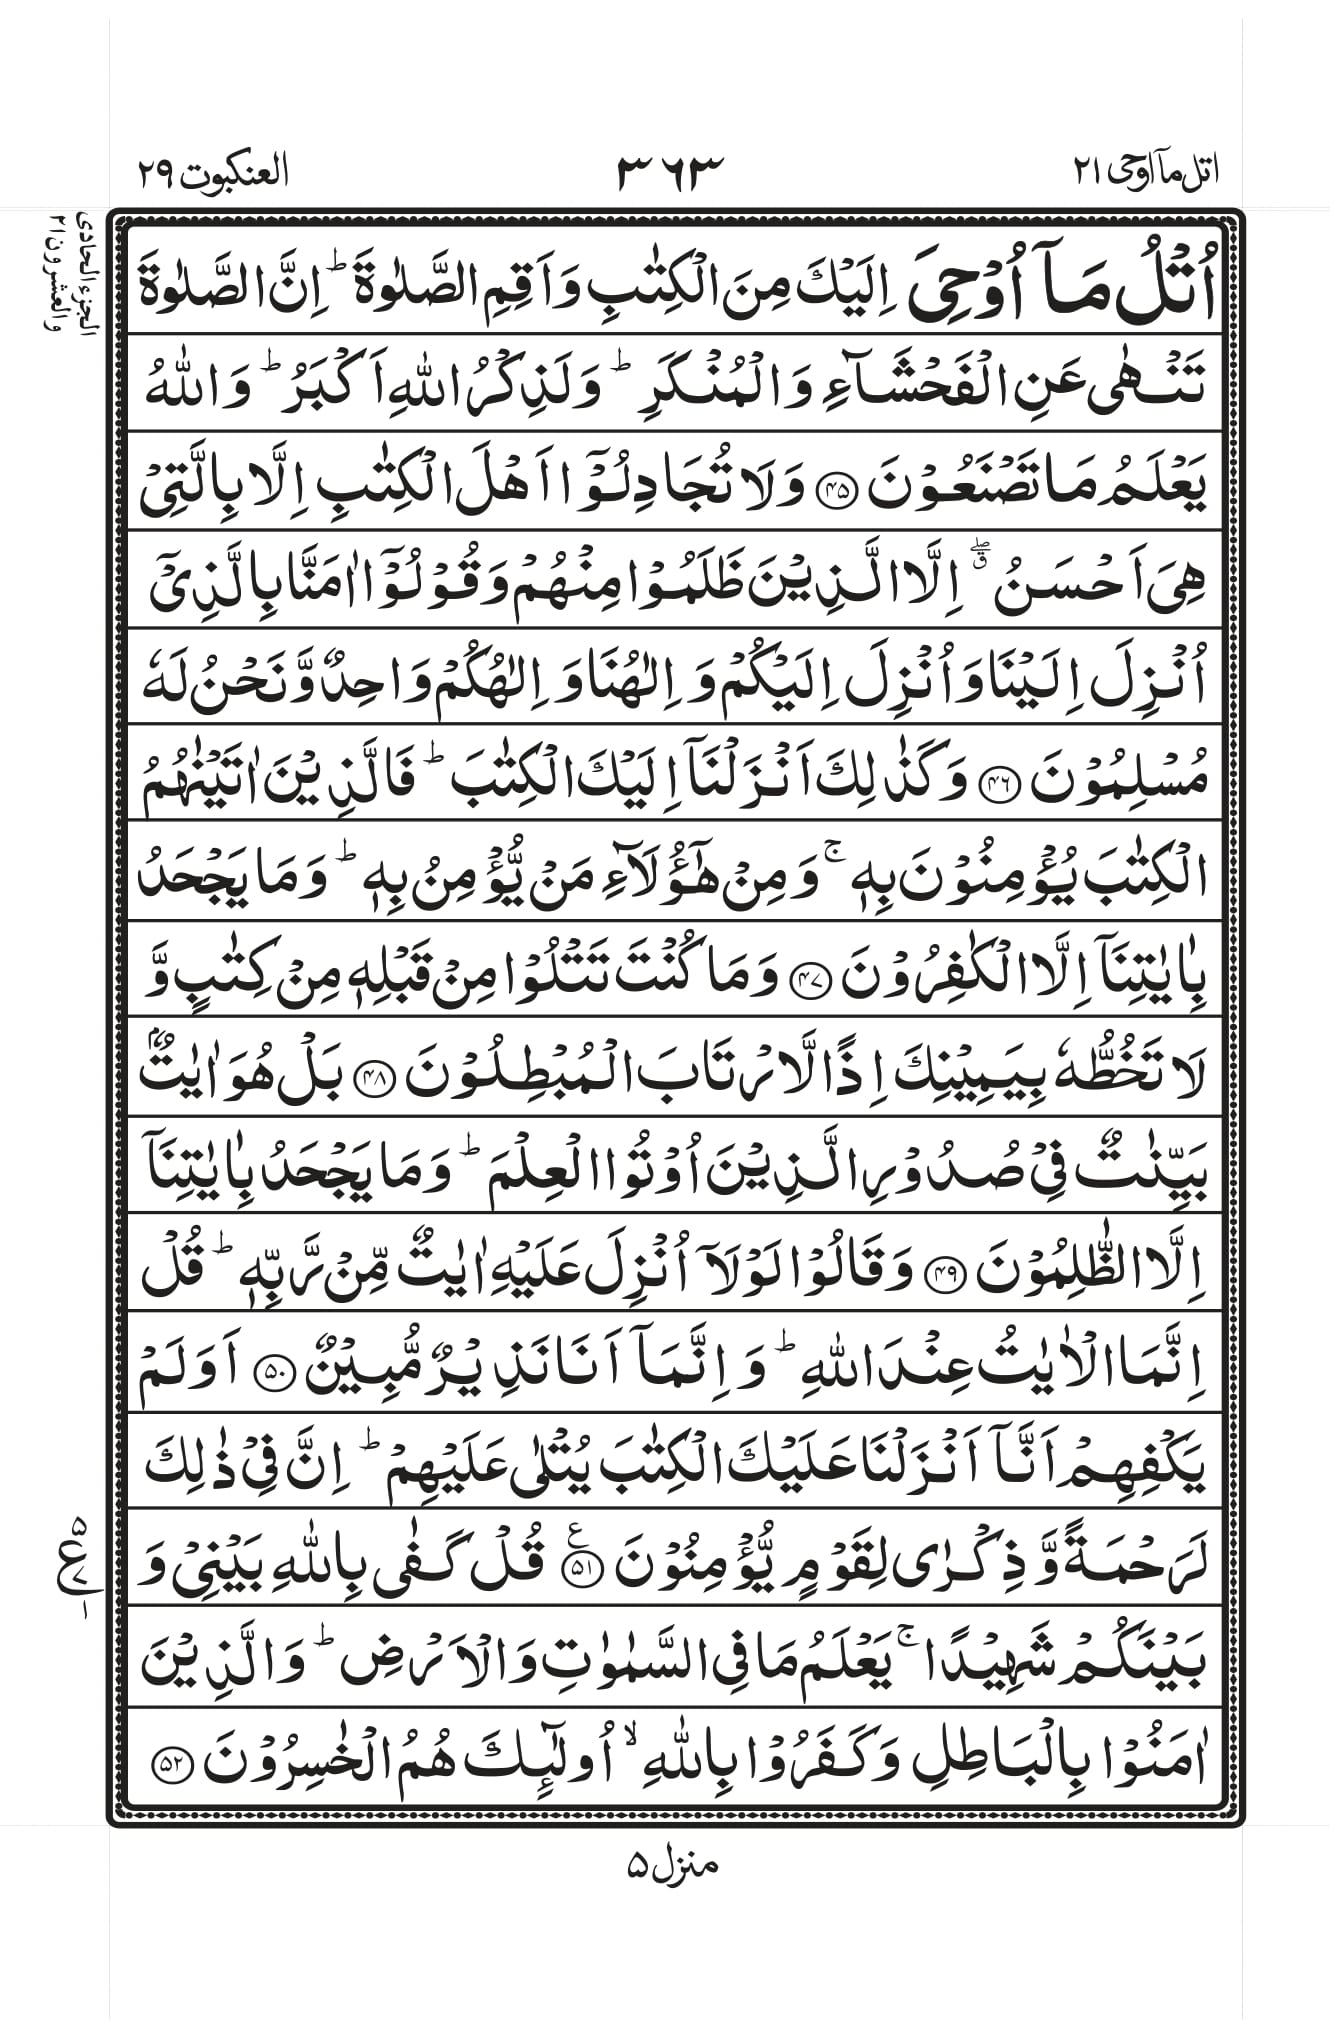 اتل مآ اوحی ۲۱
۳۶۳
العنکبوت ۲۹
الجزء الحادی
والعشرون ۲۱
اُتْلُ مَآ اُوْحِیَ اِلَیْكَ مِنَ الْكِتٰبِ وَاَقِمِ الصَّلٰوةَ ؕ اِنَّ الصَّلٰوةَ
تَنْهٰی عَنِ الْفَحْشَآءِ وَالْمُنْكَرِ ؕ وَلَذِكْرُ اللّٰهِ اَكْبَرُ ؕ وَاللّٰهُ
یَعْلَمُ مَا تَصْنَعُوْنَ ﴿۴۵﴾ وَلَا تُجَادِلُوْۤا اَهْلَ الْكِتٰبِ اِلَّا بِالَّتِیْ
هِیَ اَحْسَنُ ۖۗ اِلَّا الَّذِیْنَ ظَلَمُوْا مِنْهُمْ وَقُوْلُوْۤا اٰمَنَّا بِالَّذِیْۤ
اُنْزِلَ اِلَیْنَا وَاُنْزِلَ اِلَیْكُمْ وَ اِلٰهُنَا وَ اِلٰهُكُمْ وَاحِدٌ وَّنَحْنُ لَهٗ
مُسْلِمُوْنَ ﴿۴۶﴾ وَكَذٰلِكَ اَنْزَلْنَاۤ اِلَیْكَ الْكِتٰبَ ؕ فَالَّذِیْنَ اٰتَیْنٰهُمُ
الْكِتٰبَ یُؤْمِنُوْنَ بِهٖ ۚ وَمِنْ هٰۤؤُلَآءِ مَنْ یُّؤْمِنُ بِهٖ ؕ وَمَا یَجْحَدُ
بِاٰیٰتِنَاۤ اِلَّا الْكٰفِرُوْنَ ﴿۴۷﴾ وَمَا كُنْتَ تَتْلُوْا مِنْ قَبْلِهٖ مِنْ كِتٰبٍ وَّ
لَا تَخُطُّهٗ بِیَمِیْنِكَ اِذًا لَّارْتَابَ الْمُبْطِلُوْنَ ﴿۴۸﴾ بَلْ هُوَ اٰیٰتٌۢ
بَیِّنٰتٌ فِیْ صُدُوْرِ الَّذِیْنَ اُوْتُوا الْعِلْمَ ؕ وَمَا یَجْحَدُ بِاٰیٰتِنَاۤ
اِلَّا الظّٰلِمُوْنَ ﴿۴۹﴾ وَقَالُوْا لَوْلَاۤ اُنْزِلَ عَلَیْهِ اٰیٰتٌ مِّنْ رَّبِّهٖ ؕ قُلْ
اِنَّمَا الْاٰیٰتُ عِنْدَ اللّٰهِ ؕ وَ اِنَّمَاۤ اَنَا نَذِیْرٌ مُّبِیْنٌ ﴿۵۰﴾ اَوَلَمْ
یَكْفِهِمْ اَنَّاۤ اَنْزَلْنَا عَلَیْكَ الْكِتٰبَ یُتْلٰی عَلَیْهِمْ ؕ اِنَّ فِیْ ذٰلِكَ
لَرَحْمَةً وَّ ذِكْرٰی لِقَوْمٍ یُّؤْمِنُوْنَ ﴿۵۱﴾ ع قُلْ كَفٰی بِاللّٰهِ بَیْنِیْ وَ
۵
ع ۷
۱
بَیْنَكُمْ شَهِیْدًا ۚ یَعْلَمُ مَا فِی السَّمٰوٰتِ وَالْاَرْضِ ؕ وَالَّذِیْنَ
اٰمَنُوْا بِالْبَاطِلِ وَكَفَرُوْا بِاللّٰهِ ۙ اُولٰٓئِكَ هُمُ الْخٰسِرُوْنَ ﴿۵۲﴾
منزل ۵